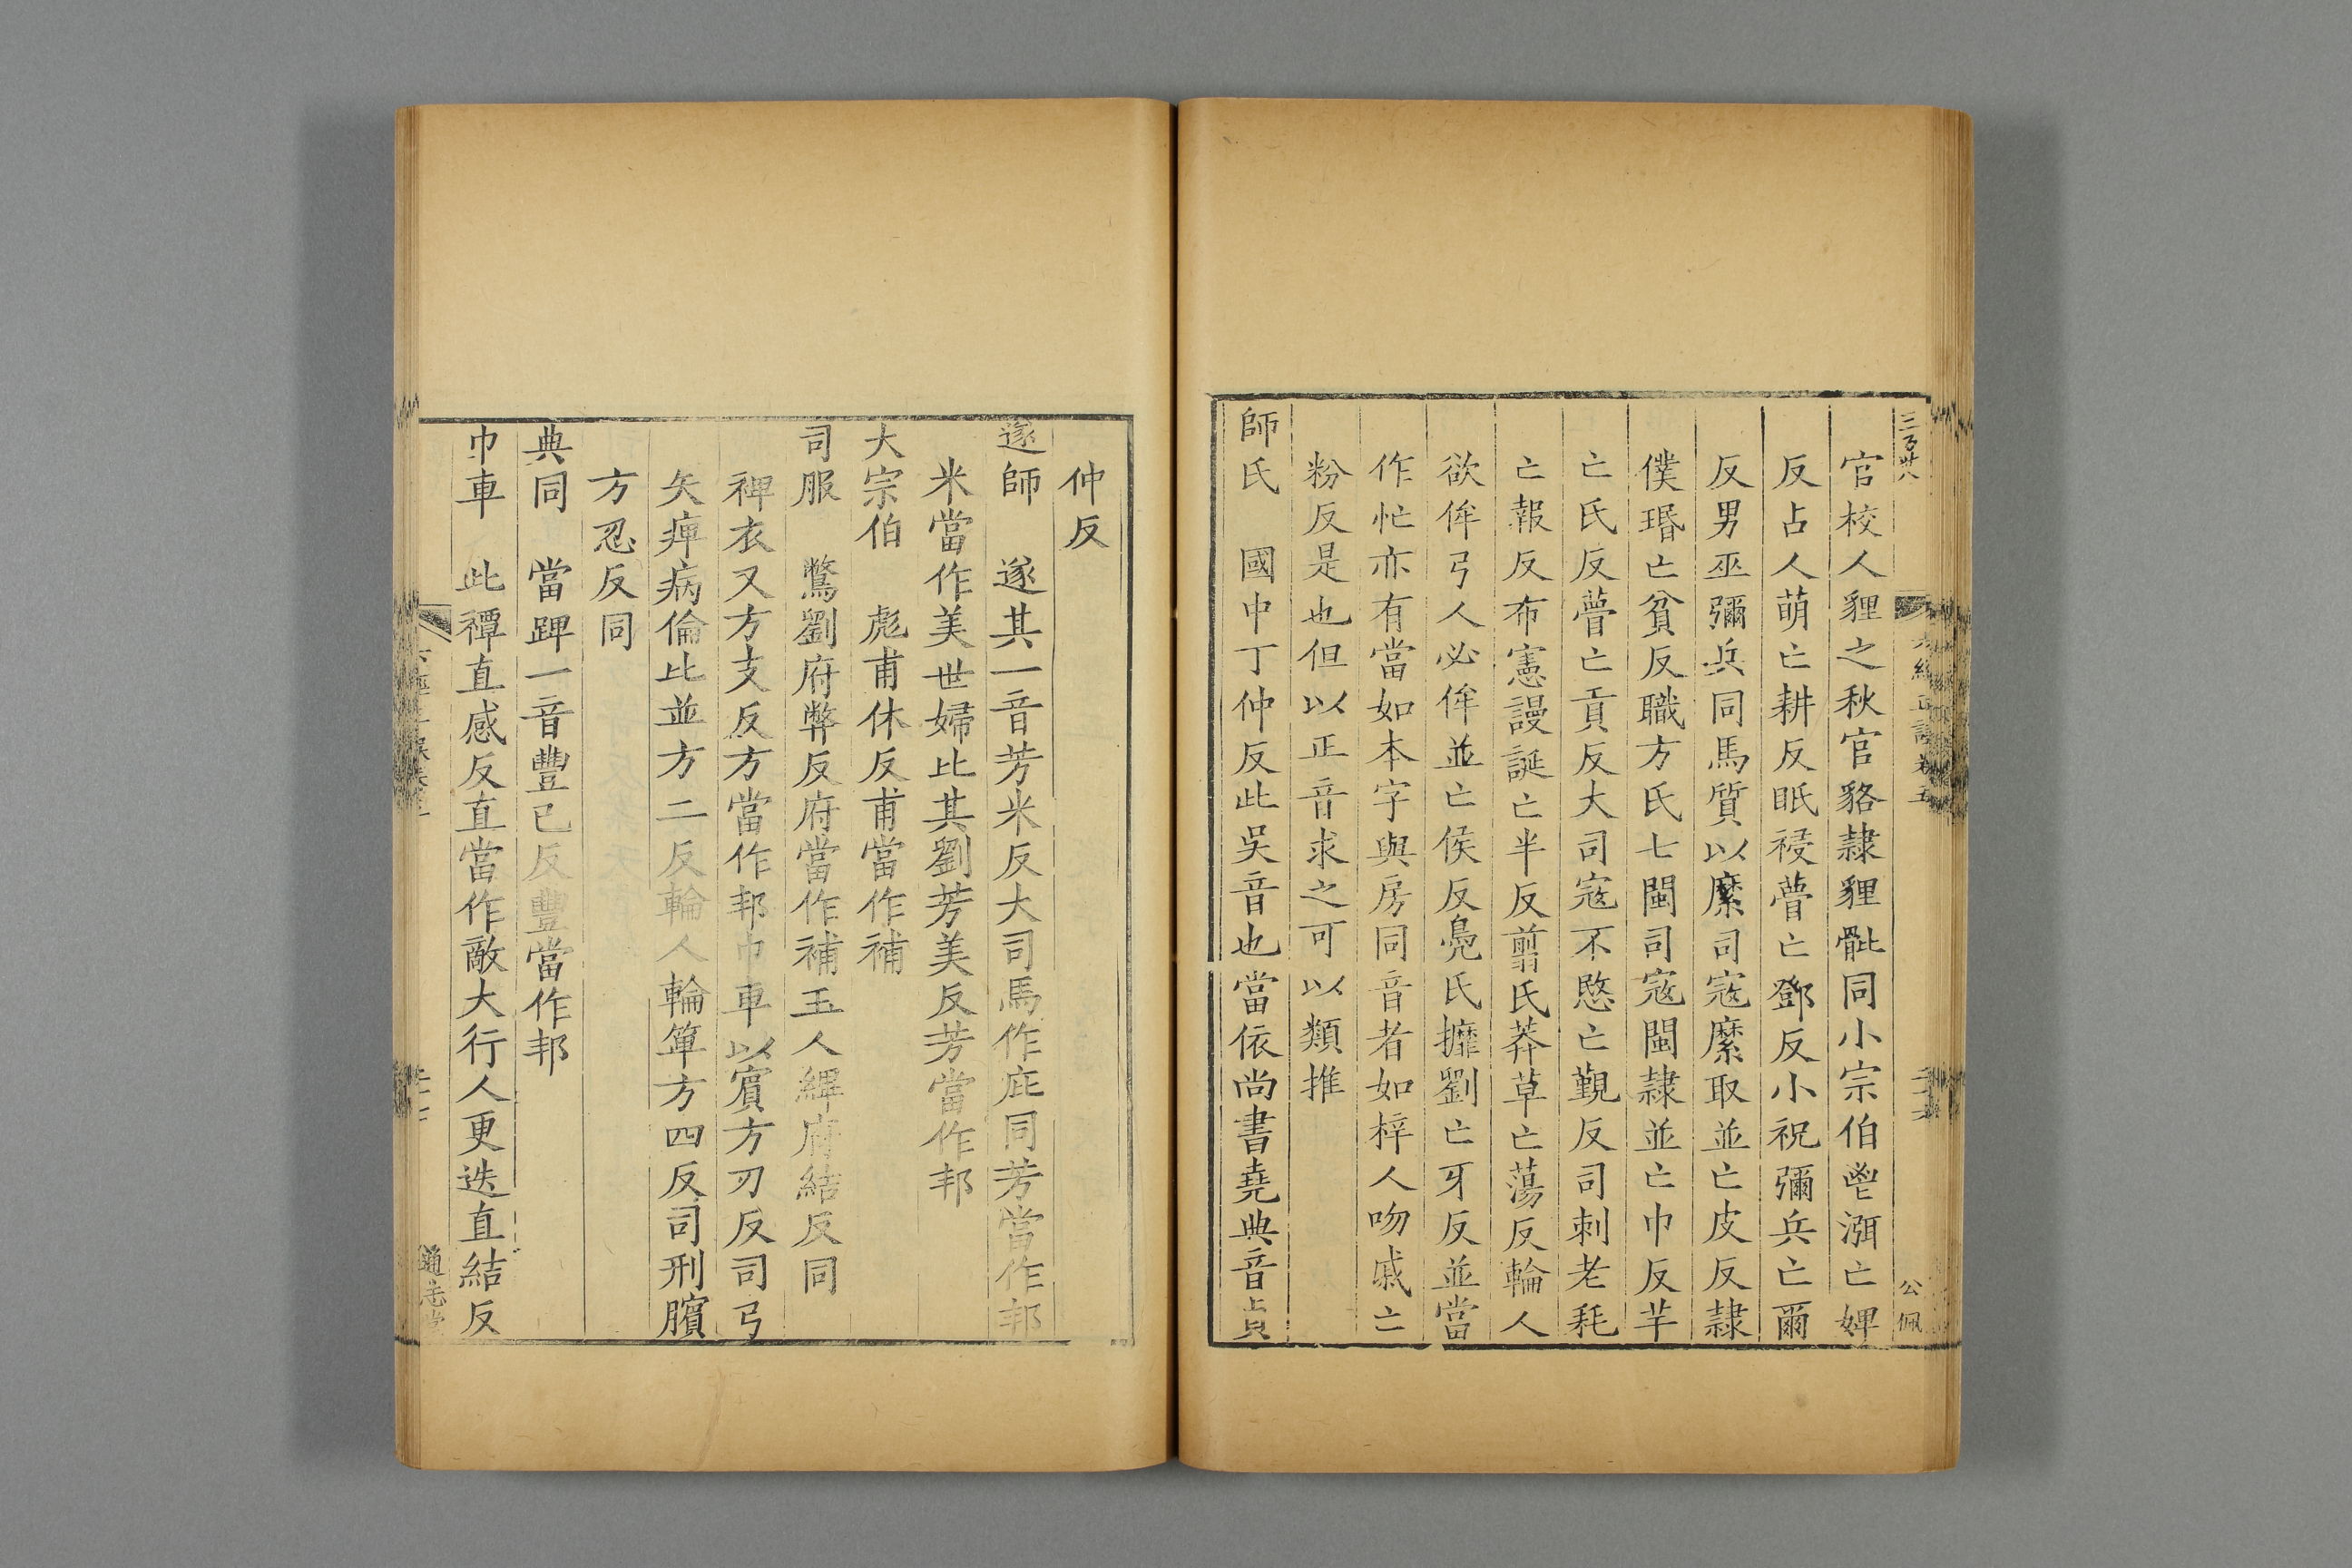 三百卅八
六經正誤卷五
公佩
官校人貍之秋官貉隸貍骴同小宗伯鬯渳亡婢
反占人萌亡耕反眂祲瞢亡鄧反小祝彌兵亡爾
反男巫彌兵同馬質以縻司寇縻取並亡皮反隸
僕㻉亡貧反職方氏七閩司寇閩隸並亡巾反芉
亡氏反瞢亡貢反大司寇不愍亡觐反司刺老耗
亡報反布憲謾誕亡半反翦氏莽草亡蕩反輪人
欲侔弓人必侔並亡侯反鳧氏攠劉亡牙反並當
作忙亦有當如本字與房同音者如梓人吻戚亡
粉反是也但以正音求之可以類推
師氏 國中丁仲反此吳音也當依尚書堯典音貞
仲反
遂師 遂其一音芳米反大司馬作庇同芳當作邦
米當作美世婦比其劉芳美反芳當作邦
大宗伯 彪甫休反甫當作補
司服 鷩劉府弊反府當作補玉人繟府結反同
裨衣又方支反方當作邦巾車以賓方刃反司弓
矢痺病倫比並方二反輪人輪箄方四反司刑臏
方忍反同
典同 當踔一音豐已反豐當作邦
巾車 此禫直感反直當作敵大行人更迭直結反
通志堂